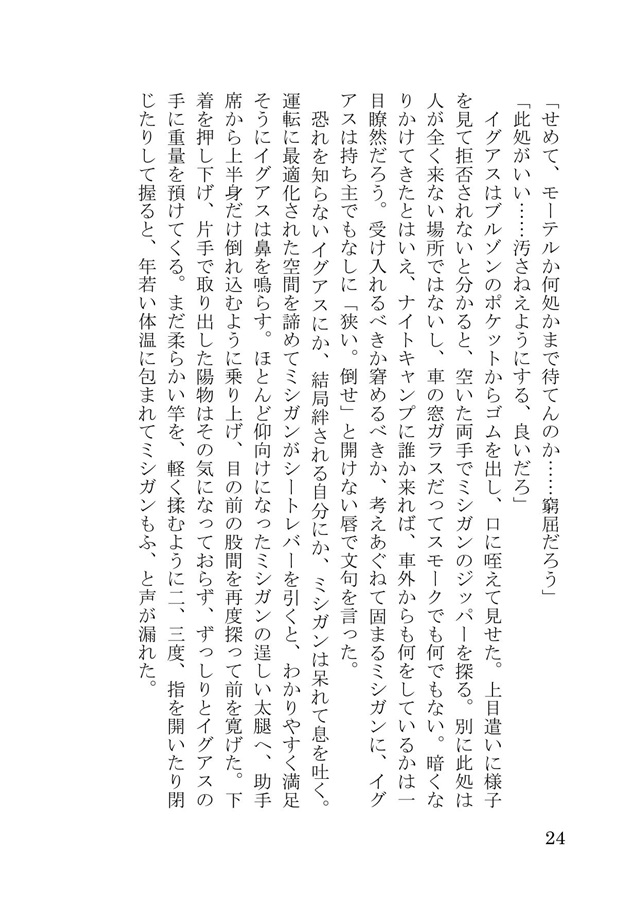 「せめて、モーテルか何処かまで待てんのか……窮屈だろう」
「此処がいい……汚さねえようにする、良いだろ」
　イグアスはブルゾンのポケットからゴムを出し、口に咥えて見せた。上目遣いに様子
を見て拒否されないと分かると、空いた両手でミシガンのジッパーを探る。別に此処は
人が全く来ない場所ではないし、車の窓ガラスだってスモークでも何でもない。暗くな
りかけてきたとはいえ、ナイトキャンプに誰か来れば、車外からも何をしているかは一
目瞭然だろう。受け入れるべきか窘めるべきか、考えあぐねて固まるミシガンに、イグ
アスは持ち主でもなしに「狭い。倒せ」と開けない唇で文句を言った。
　恐れを知らないイグアスにか、結局絆される自分にか、ミシガンは呆れて息を吐く。
運転に最適化された空間を諦めてミシガンがシートレバーを引くと、わかりやすく満足
そうにイグアスは鼻を鳴らす。ほとんど仰向けになったミシガンの逞しい太腿へ、助手
席から上半身だけ倒れ込むように乗り上げ、目の前の股間を再度探って前を寛げた。下
着を押し下げ、片手で取り出した陽物はその気になっておらず、ずっしりとイグアスの
手に重量を預けてくる。まだ柔らかい竿を、軽く揉むように二、三度、指を開いたり閉
じたりして握ると、年若い体温に包まれてミシガンもふ、と声が漏れた。
24